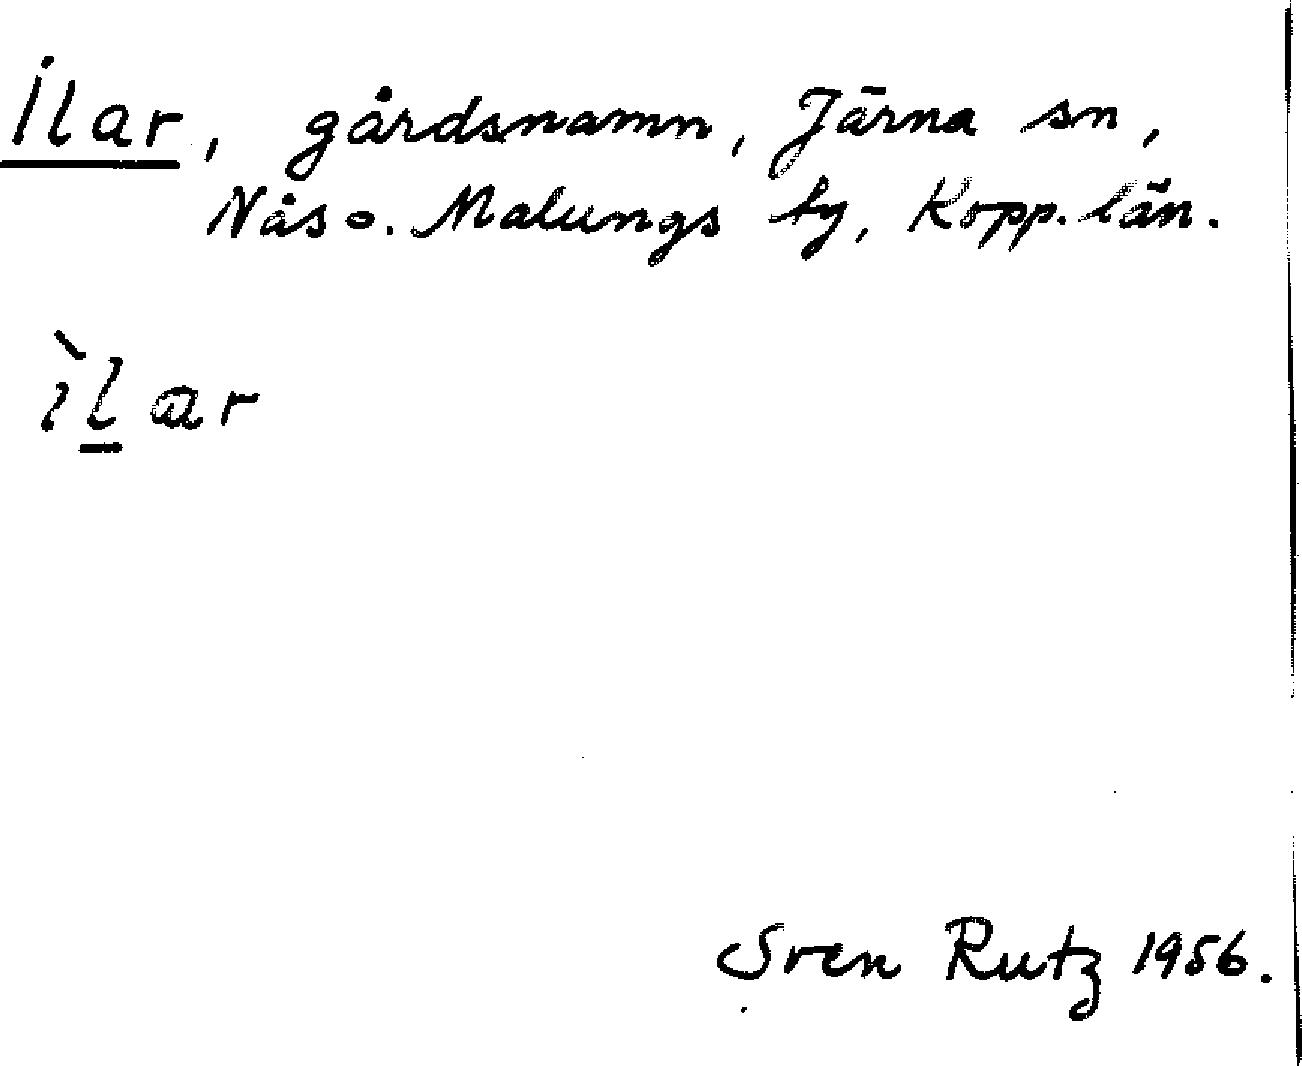 Ilar, gårdsnamn, Järna sn,
Nås o. Malungs fg, Kopp. län.
ìlar
Sven Rutz 1956.